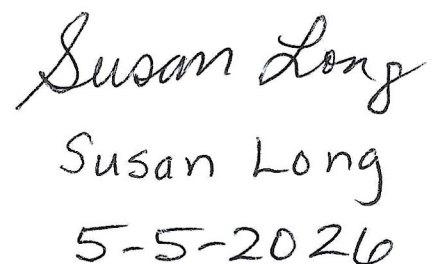 Susan Long
Susan Long
5-5-2026